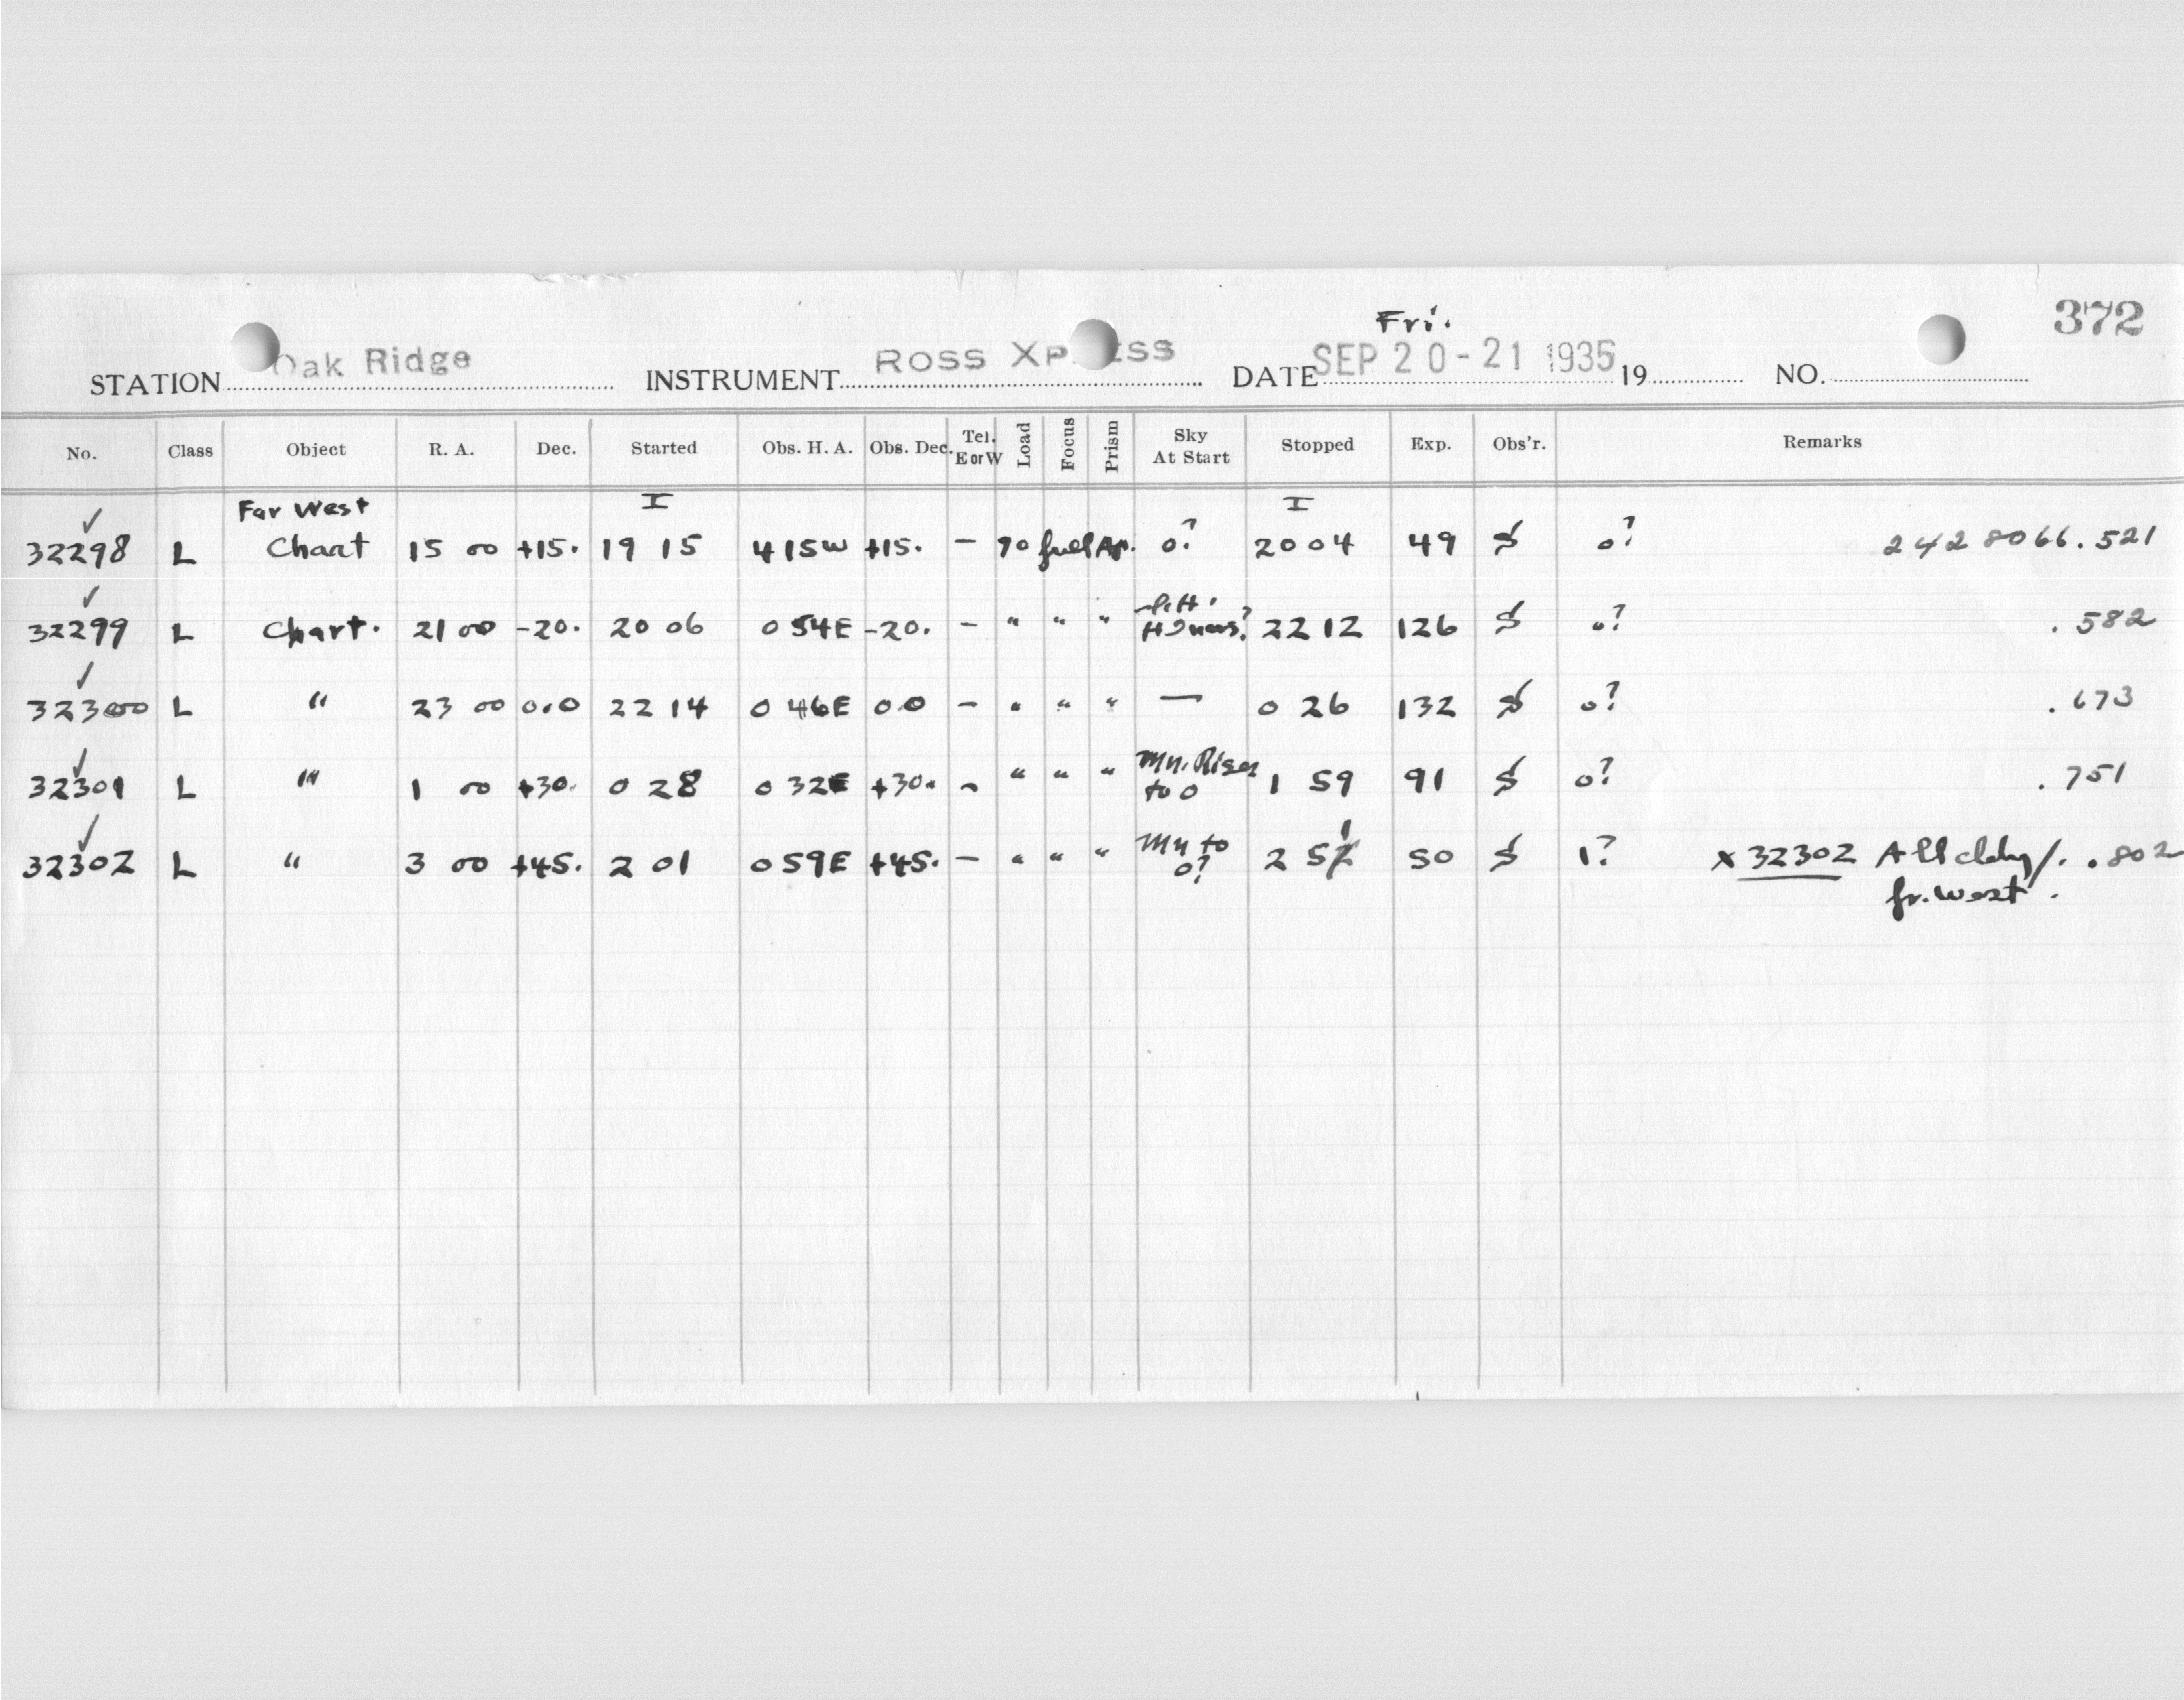 Fri. 372
STATION Oak Ridge INSTRUMENT ROSS XP ESS DATE SEP 20-21 1935 19 NO.
No. Class Object R. A. Dec. Started Obs. H. A. Obs. Dec. Tel. E or W Load Focus Prism Sky At Start Stopped Exp. Obs'r. Remarks
Far West I I
32298 L Chart 15 00 +15. 19 15 4 15W +15. - 70 full Ap. 0? 20 04 49 0? 2428066.521
32299 L Chart. 21 00 -20. 20 06 0 54E -20. - " " " 22 12 126 0? .582
32300 L " 23 00 0.0 22 14 0 46E 0.0 - " " " — 0 26 132 0? .673
32301 L " 1 00 +30. 0 28 0 32E +30. - " " " Mn. Rises to 0 1 59 91 0? .751
32302 L " 3 00 +45. 2 01 0 59E +45. - " " " Mn to 0? 2 51 50 1? x 32302 All cldy/. .802
fr. west.